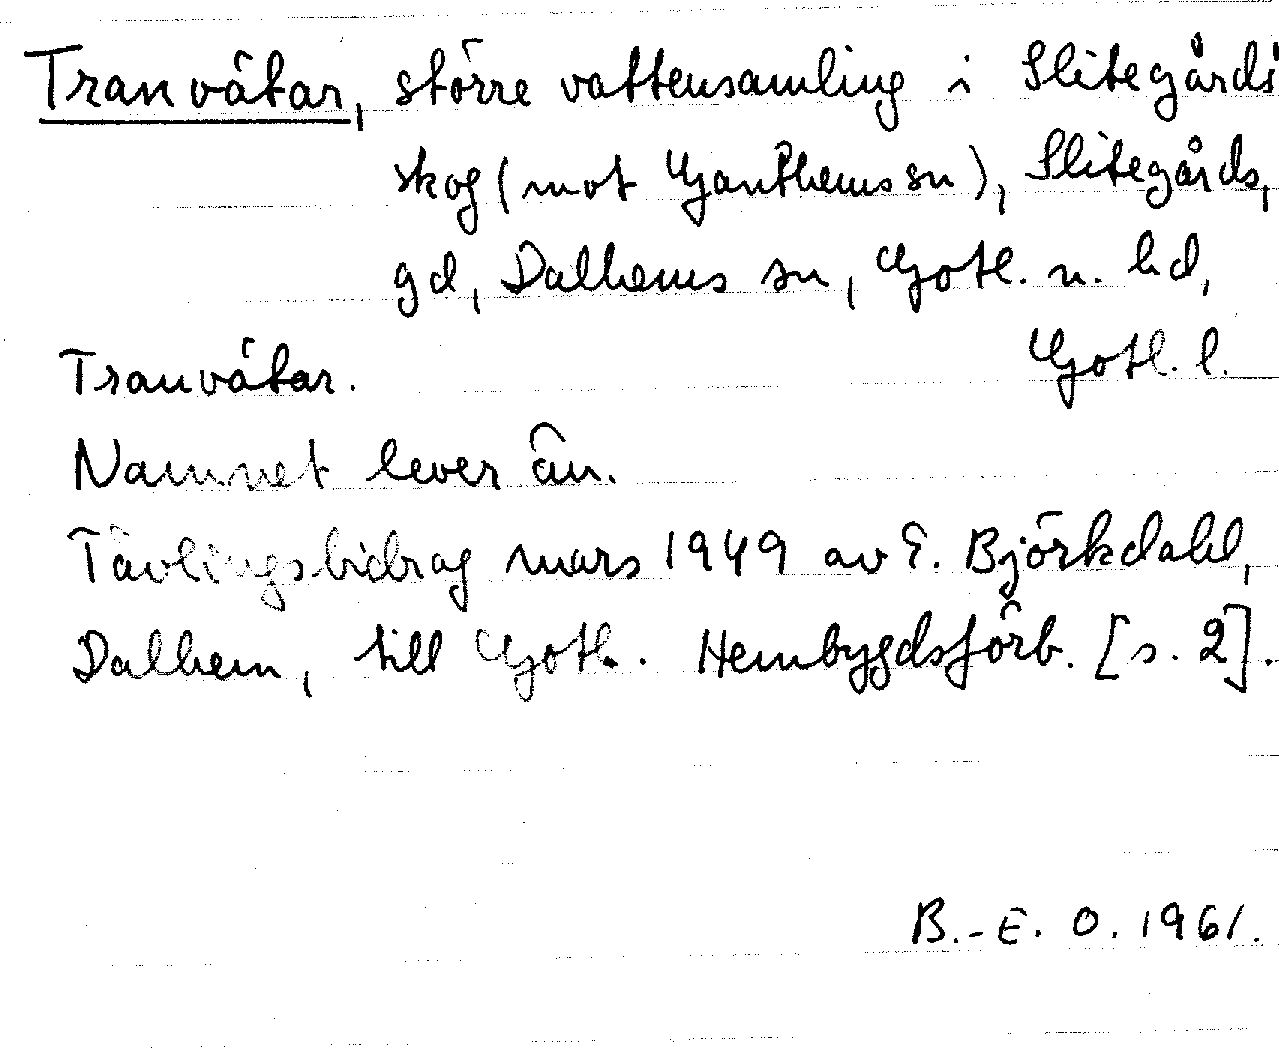 Tranvätar, större vattensamling i Slitegårds
skog (mot Ganthems sn), Slitegårds,
gd, Dalhems sn, Gotl. n. hd,
Gotl. l.
Tranvätar.
Namnet lever än.
Tävlingsbidrag mars 1949 av E. Björkdahl,
Dalhem, till Gotl. Hembygdsförb. [s. 2].
B.-E. O. 1961.